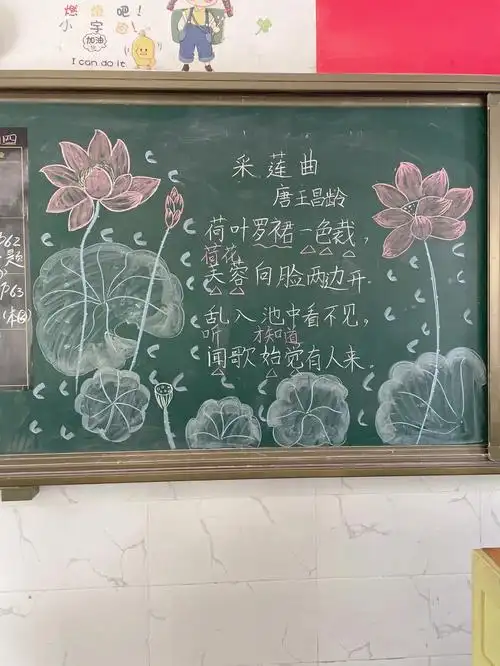 燃 吧!
小宇
加油
I can do it
四
采莲曲
唐王昌龄
荷叶罗裙一色裁,
荷花
芙蓉向脸两边开.
乱入池中看不见,
听 才知道
闻歌始觉有人来.
P62
题
P63